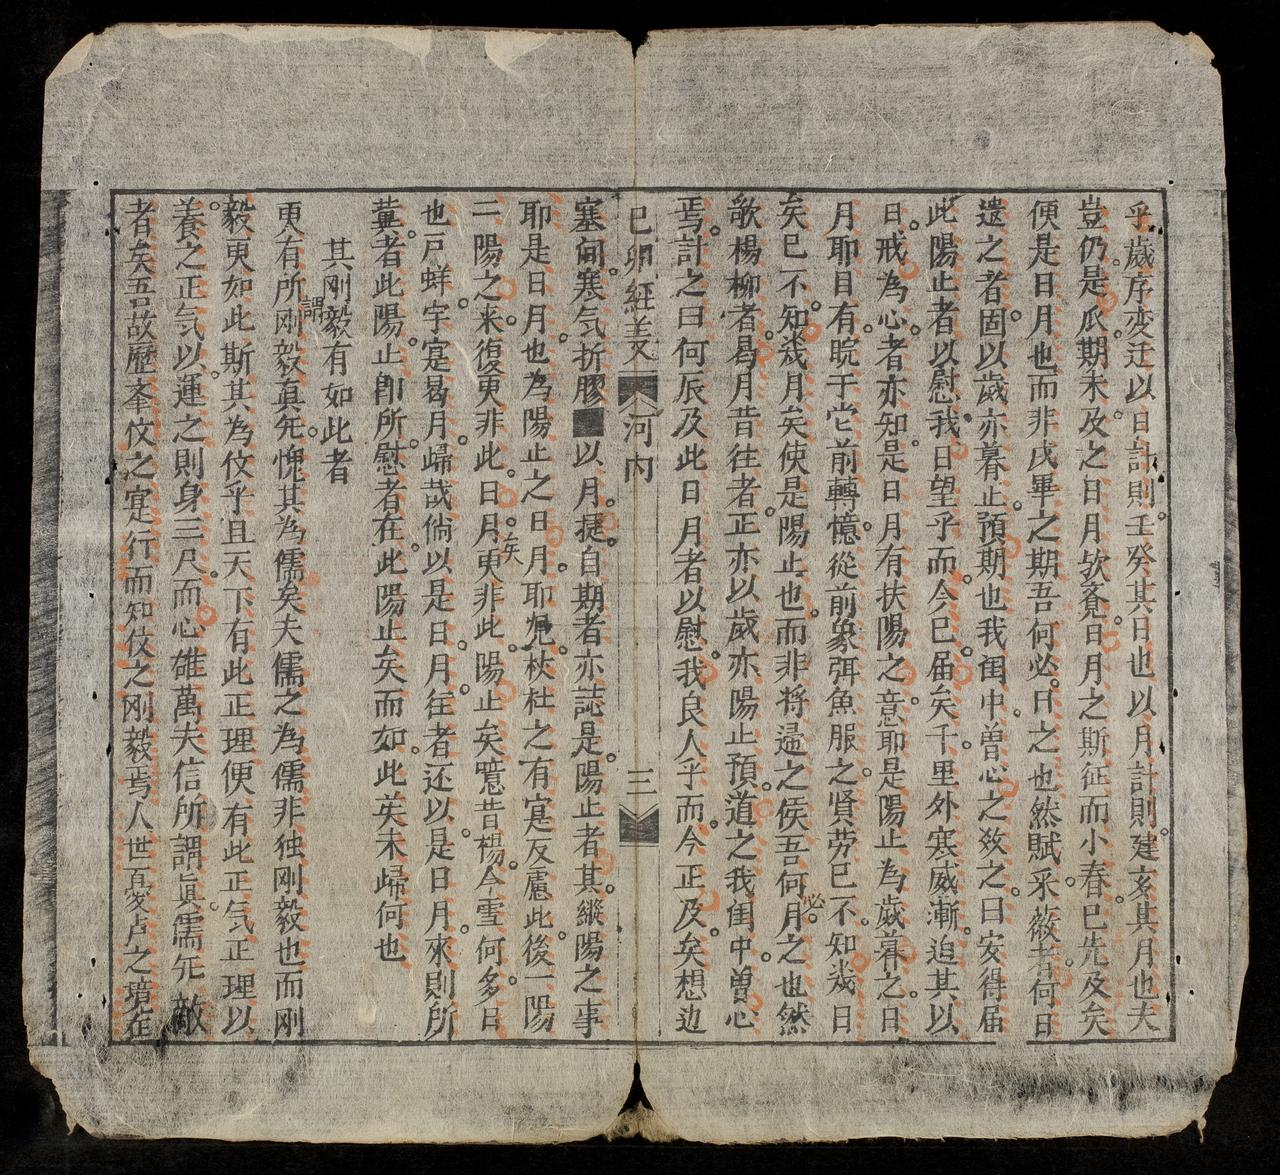 乎歲序変迁以日計則壬癸其日也以月計則建亥其月也夫
豈仍是瓜期未及之日月欤竟日月之斯征而小春已先及矣
便是日月也而非戍畢之期吾何必日之也然賦采薇者何日
遗之者固以歲亦暮止預期也我闺中曽心之数之曰安得届
此陽止者以慰我日望乎而今已届矣千里外寒威漸追其以
日戒為心者亦知是日月有扶陽之意耶是陽止為歲暮之日
月耶目有睆于它前轉憶從前象弭魚服之賢劳已不知幾日
矣已不知幾月矣使是陽止也而非将逼之俟吾何必月之也然
歌楊柳者曷月昔往者正亦以歲亦陽止預道之我闺中曽心
焉計之曰何辰及此日月者以慰我良人乎而今正及矣想边
己卯経義 河内 三
塞间寒气折膠以月提自期者亦誌是陽止者其縱陽之事
耶是日月也為陽止之日月耶况杕杜之有寔反慮此後一陽
二陽之来復更非此日月矣更非此陽止矣噫昔楊今雪何多日
也戸蛘宇寔曷月歸哉倘以是日月往者还以是日月來則所
蓳者此陽止即所慰者在此陽止矣而如此矣未歸何也
其刚毅有如此者
更有所謂刚毅真无愧其為儒矣夫儒之為儒非独刚毅也而刚
毅更如此斯其為伩乎且天下有此正理便有此正気正理以
養之正気以運之則身三尺而心雄萬夫信所謂眞儒無敵
者矣吾故歷夆伩之寔行而知伩之刚毅焉人世百変卢之瑃在